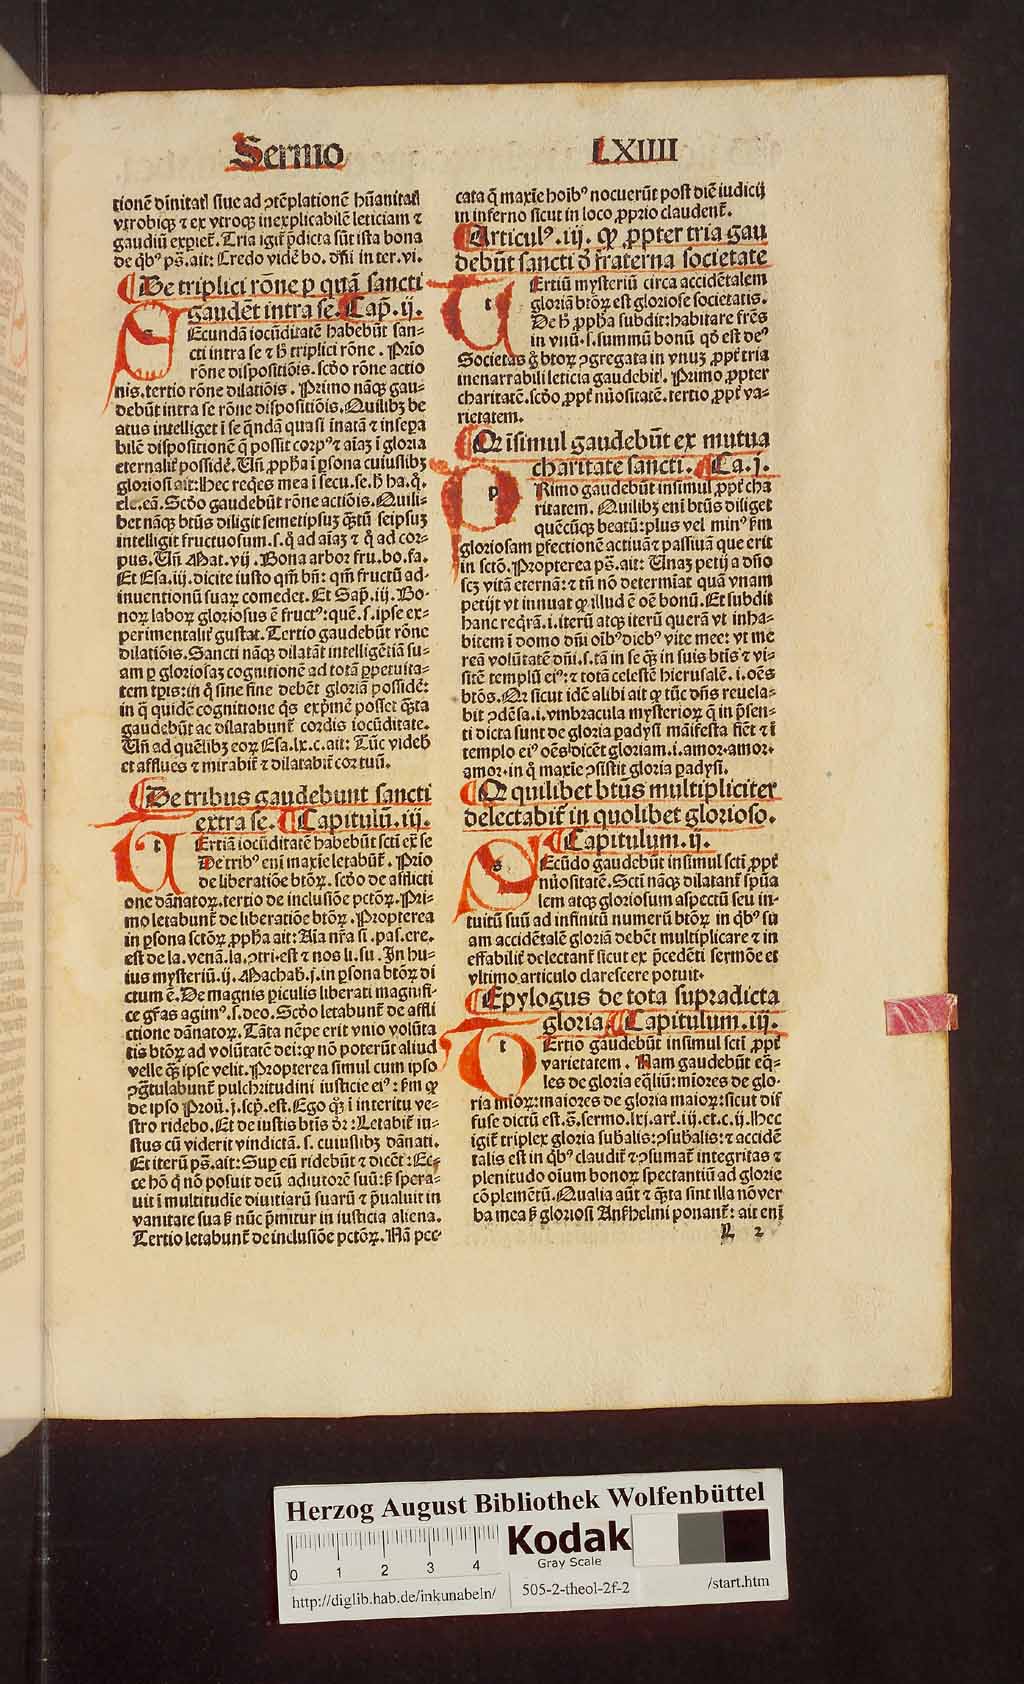 Sermo LXIIII
tionē diuitatꝭ siue ad ꝯtēplationē hūanitatꝭ
vtrobiqꝫ ⁊ ex vtroqꝫ inexplicabilē leticiam ⁊
gaudiū expriet̄. Tria igit̄ p̄dicta sūt ista bona
de qͥbꝰ pꝰ. ait: Credo videre bo. dñi in ter. vi.
¶De triplici rōne ꝑ quā sancti
gaudēt intra se. ¶Cap̄. ij.
sEcundā iocūditatē habebūt san⸗
cti intra se ⁊ h̄ triplici rōne. Prio
rōne dispositiōis. scḋo rōne actio
nis. tertio rōne dilatiōis. Primo nāqꝫ gau⸗
debūt intra se rōne dispositiōis. Quilibꝫ be
atus intelliget ī se qͣndā quasi inatā ⁊ insepa
bilē dispositionē qͣ possit corpꝰ ⁊ aīaꝫ ī gloria
eternalit̄ possidē. Vñ ꝓpha ī ꝑsona cuiuslibꝫ
gloriosi ait: Hec reqͥes mea ī secu. se. h̄ ha. qͥ.
ele. eā. Scḋo gaudebūt rōne actiōis. Quili⸗
bet nāqꝫ btūs diligit semetipsuꝫ qͣtū seipsuꝫ
intelligit fructuosum. s. qͥ ad aīaꝫ ⁊ qͥ ad cor⸗
pus. Vñ Mat. vij. Bona arbor fru. bo. fa.
Et Esa. iij. dicite iusto qm̄ bñ: qm̄ fructū ad⸗
inuentionū suaꝝ comedet. Et Sap̄. iij. Bo⸗
noꝝ laboꝝ gloriosus ē fructꝰ: quē. s. ipse ex⸗
perimentalit̄ gustat. Tertio gaudebūt rōne
dilatiōis. Sancti nāqꝫ dilatāt intelligētiā su⸗
am ꝑ gloriosaꝫ cognitionē ad totā ꝑpetuita⸗
tem tꝑis: in qͣ sine fine debēt gloriā possidē:
in qͣ quidē cognitione qͥs exprimē posset qͣnta
gaudebūt ac dilatabunt̄ cordis iocūditate.
Vñ ad quēlibꝫ eoꝝ Esa. lx. c. ait: Tūc videb̄
et afflues ⁊ mirabit̄ ⁊ dilatabit̄ cor tuū.
¶De tribus gaudebunt sancti
extra se. ¶Capitulū. iij.
tErtiā iocūditatē habebūt scti exͣ se
De tribꝰ enī maxie letabūt̄. Prio
de liberatiōe btōꝝ. scḋo de afflicti
one dānatoꝝ. tertio de inclusiōe pctōꝝ. Pri⸗
mo letabunt̄ de liberatiōe btōꝝ. Propterea
in ꝑsona sctōꝝ ꝓpha ait: Aīa nr̄a si. pas. ere.
est de la. venā. la. ꝯtri. est ⁊ nos li. su. In hu⸗
ius mysteriū. ij. Machab̄. j. in ꝑsona btōꝝ di
ctum ē. De magnis ꝑiculis liberati magnifi⸗
ce gr̄as agimꝰ. s. deo. Scḋo letabunt̄ de affli
ctione dānatoꝝ. Tāta nēpe erit vnio volūta
tis btōꝝ ad volūtatē dei: ꝙ nō poterūt aliud
velle qͣꝫ ipse velit. Propterea simul cum ipso
ꝯgͣtulabunt̄ pulchritudini iusticie eiꝰ: ẜm ꝙ
de ipso Prou. j. scͥp. est. Ego qͦꝫ ī interitu ve⸗
stro ridebo. Et de iustis btis dr̄: Letabit̄ iu⸗
stus cū viderit vindictā. s. cuiuslibꝫ dānati.
Et iterū pꝰ. ait: Suꝑ eū ridebūt ⁊ dicēt: Ec⸗
ce hō qͥ nō posuit deū adiutorē suū: ꝫ spera⸗
uit ī multitudīe diuitiarū suarū ⁊ p̄ualuit in
vanitate sua ꝫ nūc p̄mitur in iusticia aliena.
Tertio letabunt̄ de inclusiōe pctōꝝ. Nā pec⸗
cata qͣ maxie hoībꝰ nocuerūt post diē iudicij
in inferno sicut in loco ꝓprio claudent̄.
¶Articulꝰ. iij. ꝙ ꝓpter tria gau
debūt sancti ḋ fraterna societate
tErtiū mysteriū circa accidētalem
gloriā btōꝝ est gloriose societatis.
De h̄ ꝓpha subdit: habitare fr̄es
in vnū. s. summū bonū qḋ est deꝰ
Societas gͦ btōꝝ ꝯgregata in vnuꝫ ꝓpt̄ tria
inenarrabili leticia gaudebit. Primo ꝓpter
charitatē. scḋo ꝓpt̄ nūositatē. tertio ꝓpt̄ va⸗
rietatem.
¶Qꝛ īsimul gaudebūt ex mutua
charitate sancti. ¶Ca. j.
pRimo gaudebūt insimul ꝓpt̄ cha
ritatem. Quilibꝫ enī btūs diliget
quēcūqꝫ beatū: plus vel minꝰ ẜm
gloriosam ꝑfectionē actiuā ⁊ passiuā que erit
in sctō. Propterea pꝰ. ait: Vnaꝫ petij a dño
scꝫ vitā eternā: ⁊ tñ nō determīat quā vnam
petijt vt innuat ꝙ illud ē oē bonū. Et subdit
hanc reqͥrā. i. iterū atqꝫ iterū querā vt inha⸗
bitem ī domo dñi oībꝰ diebꝰ vite mee: vt vi⸗
deā volūtatē dñi. s. tā in se qͣꝫ in suis btis ⁊ vi⸗
sitē templū eiꝰ: ⁊ totā celestē hierusalē. i. oēs
btōs. Qꝛ sicut idē alibi ait ꝙ tūc dñs reuela⸗
bit ꝯdēsa. i. vmbracula mysterioꝝ qͣ in p̄sen⸗
ti dicta sunt de gloria ꝑadysi māifesta fiēt ⁊ ī
templo eiꝰ oēs dicēt gloriam. i. amor. amor.
amor. in qͣ maxie ꝯsistit gloria ꝑadysi.
¶Qꝛ quilibet btūs multipliciter
delectabit̄ in quolibet glorioso.
¶Capitulum. ij.
sEcūdo gaudebūt insimul scti ꝓpt̄
nūositatē. Scti nāqꝫ dilatant̄ spūa
lem atqꝫ gloriosum aspectū seu in⸗
tuitū suū ad infinitū numerū btōꝝ in qͥbꝰ su
am accidētalē gloriā debēt multiplicare ⁊ in
effabilit̄ delectant̄ sicut ex p̄cedēti sermōe et
vltimo articulo clarescere potuit.
¶Epylogus de tota supradicta
gloria. ¶Capitulum. iij.
tErtio gaudebūt insimul scti ꝓpt̄
varietatem. Nam gaudebūt eqͣ⸗
les de gloria eqͣliū: miores de glo⸗
ria mioꝝ: maiores de gloria maioꝝ: sicut dif
fuse dictū est. s̄. sermo. lxi. art. iij. et. c. ij. Hec
igit̄ triplex gloria sub̄alis: ꝯsub̄alis: ⁊ accidē
talis est in qͥbꝰ claudit̄ ⁊ ꝯsumat̄ integritas ⁊
plenitudo oīum bonoꝝ spectantiū ad glorie
cōplemētū. Qualia aūt ⁊ qͣnta sint illa nō ver
ba mea ꝫ gloriosi Anshelmi ponant̄: ait enī
L 2
Herzog August Bibliothek Wolfenbüttel
0 1 2 3 4
Kodak
Gray Scale
http://diglib.hab.de/inkunabeln/ 505-2-theol-2f-2 /start.htm